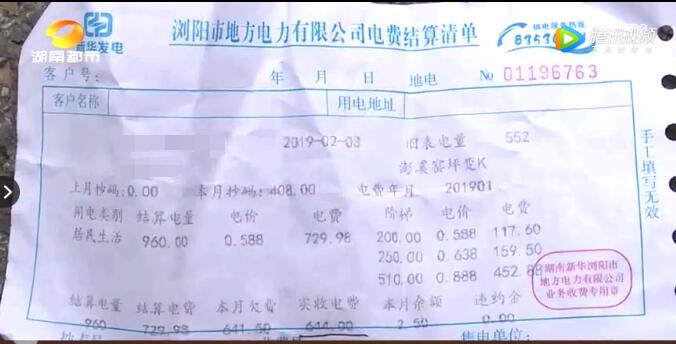 浏阳市地方电力有限公司电费结算清单
新华发电
供电服务热线
湖南都市
腾讯视频
客户号： 年 月 日 地电 No 01196763
客户名称 用电地址
2019-02-03 旧表电量 552
上月抄码:0.00 本月抄码:408.00 电费年月 201901
用电类别 结算电量 电价 电费 阶梯 电价 电费
居民生活 960.00 0.588 729.98 200.00 0.588 117.60
250.00 0.638 159.50
510.00 0.888 452.88
湖南新华浏阳市
地方电力有限公司
业务收费专用章
结算电量 结算电费 本月欠费 实收电费 本月余额 违约金
960 729.98 641.50 644.00 2.50 0.00
售电单位:
手工填写无效